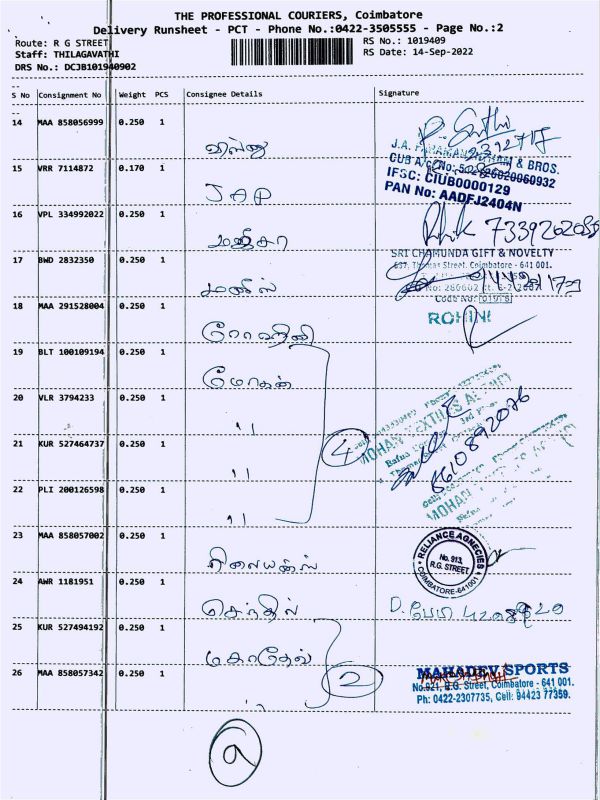 THE PROFESSIONAL COURIERS, Coimbatore
Delivery Runsheet - PCT - Phone No.:0422-3505555 - Page No.:2
Route: R G STREET
RS No.: 1019409
Staff: THILAGAVATHI
RS Date: 14-Sep-2022
DRS No.: DCJB101940902
S No Consignment No Weight PCS Consignee Details Signature
14 MAA 858056999 0.250 1
விஸ்னு
J.A. & BROS.
15 VRR 7114872 0.170 1
CUB A/C No:
IFSC: CIUB0000129
JAP
PAN No: AADFJ2404N
16 VPL 334992022 0.250 1
மஞ்சா
SRI CHAMUNDA GIFT & NOVELTY
17 BWD 2832350 0.250 1
637, Thomas Street, Coimbatore - 641 001.
மனிஸ்
18 MAA 291528004 0.250 1
ROHINI
ரோஹினி
19 BLT 100109194 0.250 1
மோகன்
20 VLR 3794233 0.250 1
"
8610892076
21 KUR 527464737 0.250 1
4
MOHAN TEXTILES AGENCY
"
22 PLI 200126598 0.250 1
MOHAN
"
23 MAA 858057002 0.250 1
RELIANCE AGNECIES
No. 913,
R.G. STREET,
COIMBATORE-641001
ரிலையன்ஸ்
24 AWR 1181951 0.250 1
செந்தில்
25 KUR 527494192 0.250 1
மகாதேவ்
26 MAA 858057342 0.250 1
2
MAHADEV SPORTS
No.921, R.G. Street, Coimbatore - 641 001.
Ph: 0422-2307735, Cell: 94423 77359.
"
9